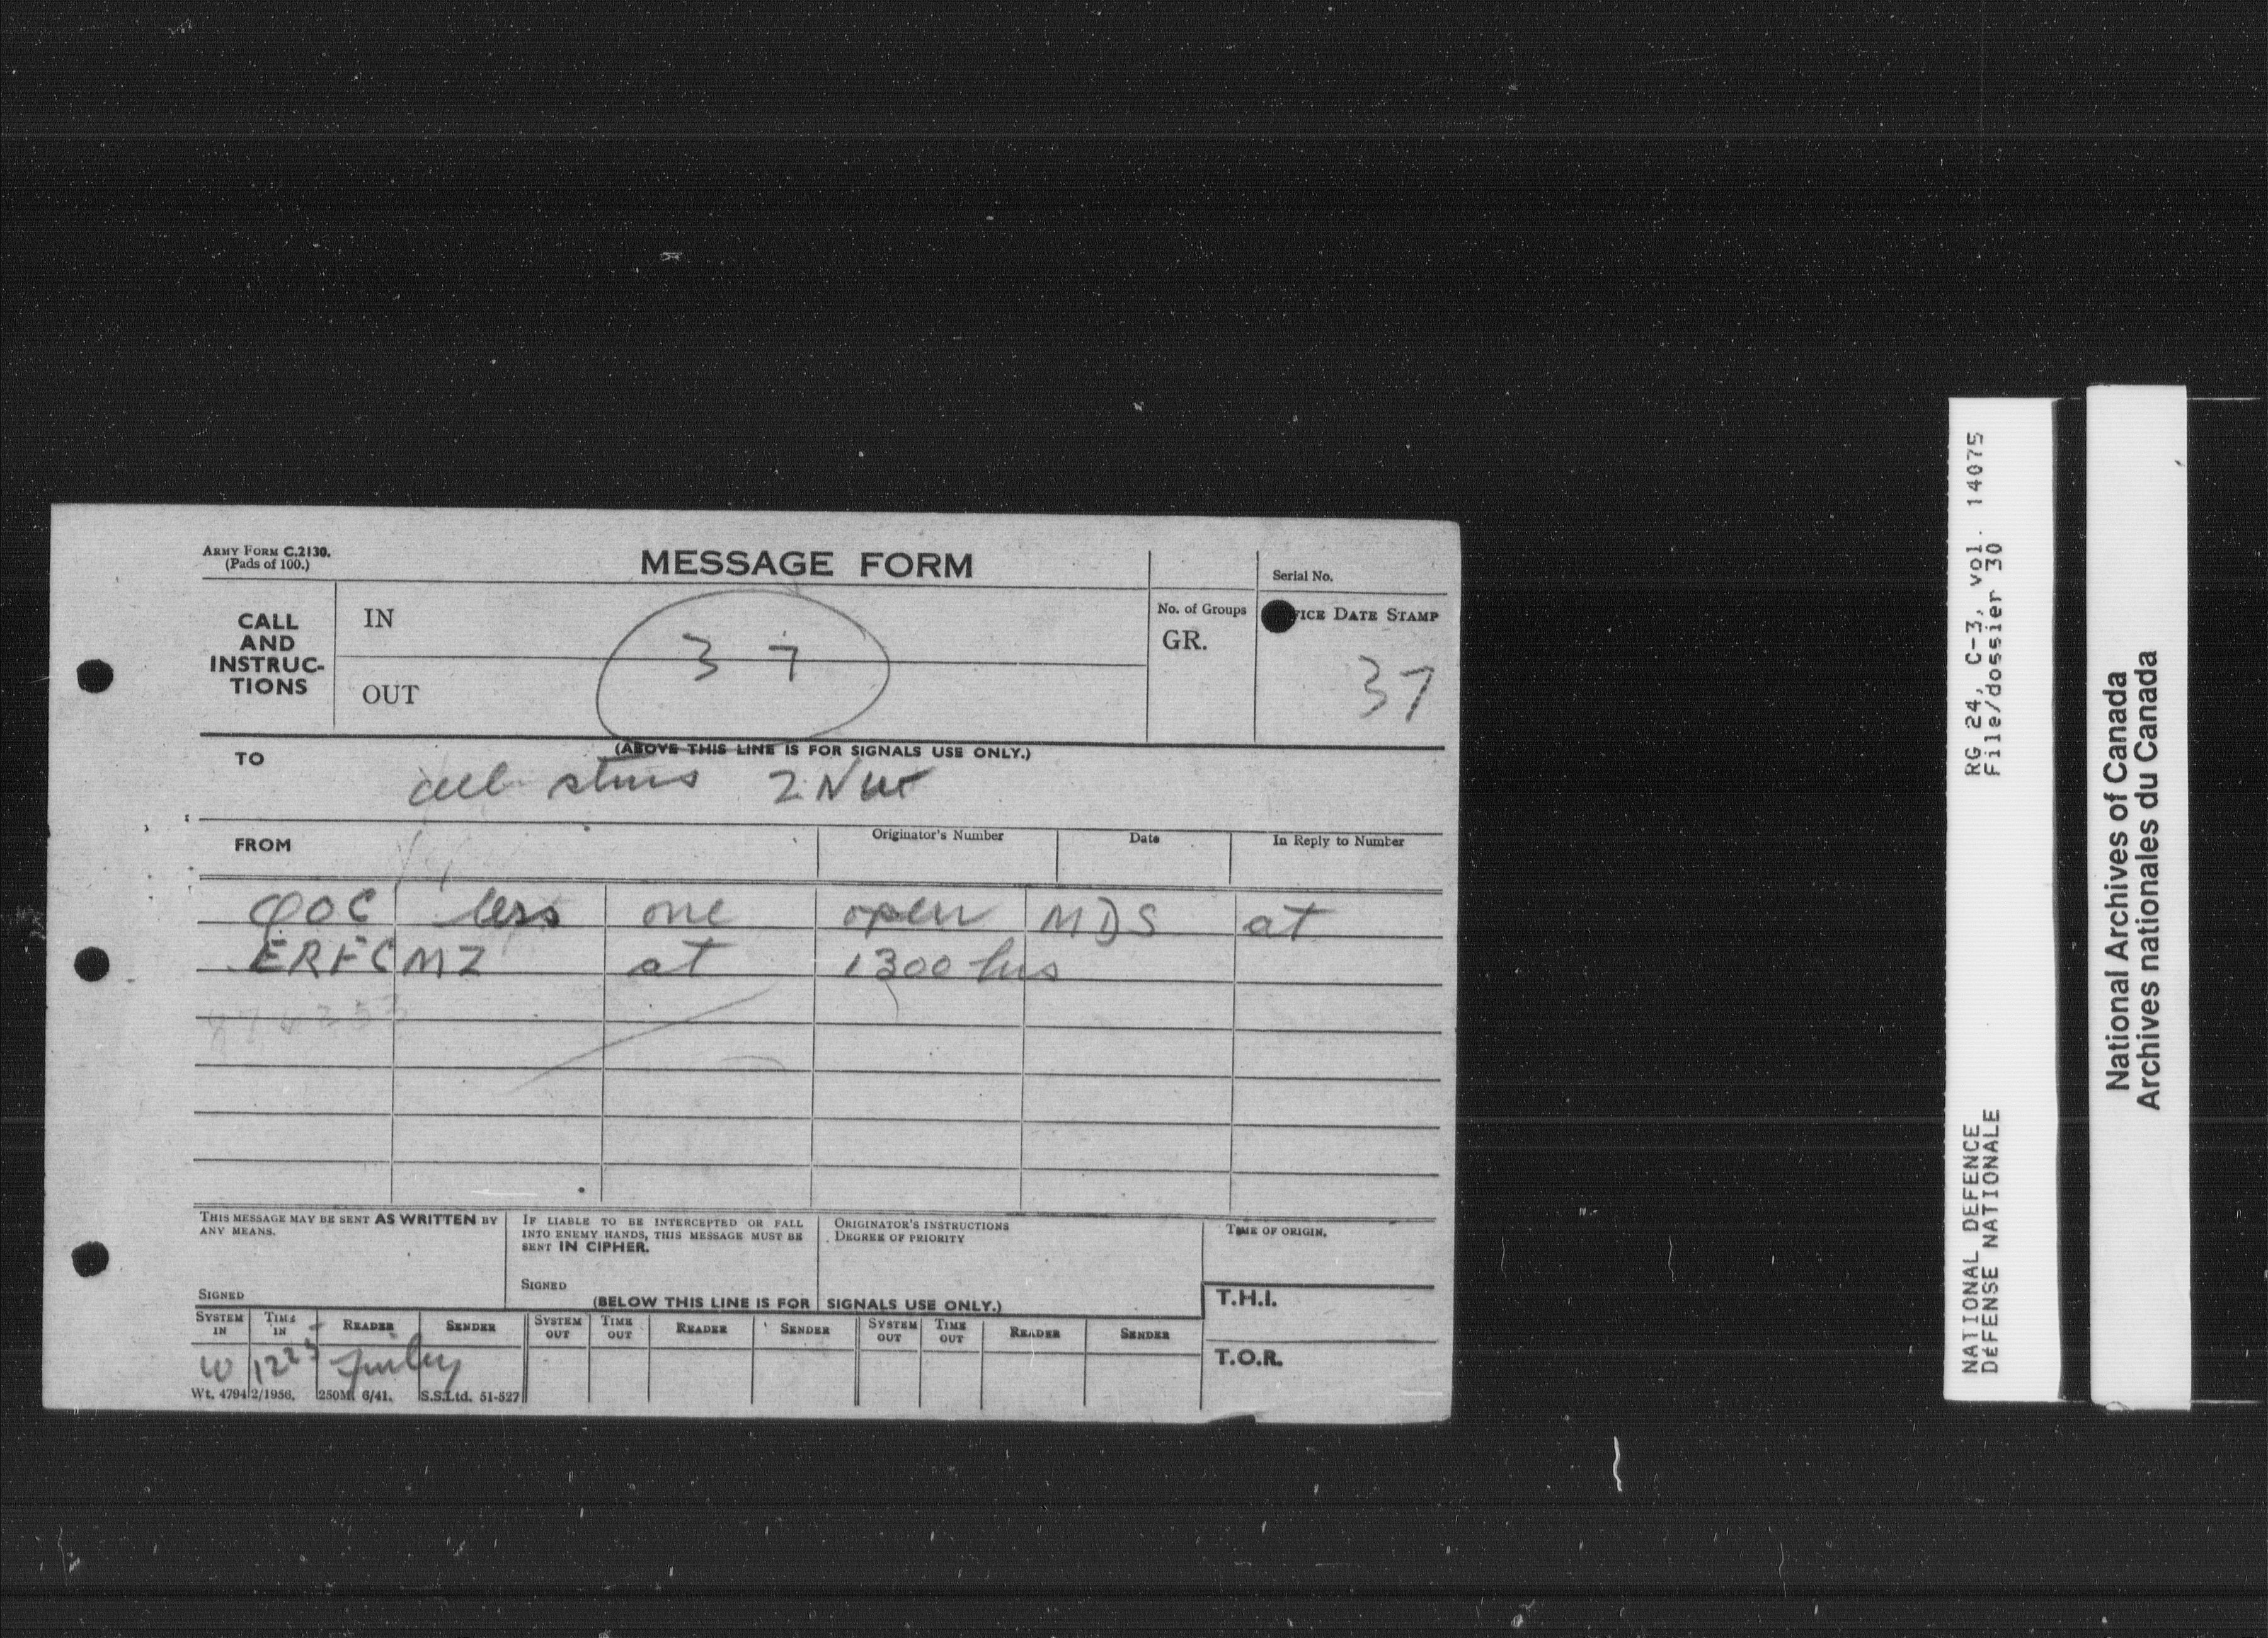 ARMY FORM C.2130.
(Pads of 100.)
MESSAGE FORM
Serial No.
CALL
AND
INSTRUC-
TIONS
IN
OUT
37
No. of Groups
GR.
VICE DATE STAMP
37
(ABOVE THIS LINE IS FOR SIGNALS USE ONLY.)
TO
all stns 2 Nut
FROM
Originator's Number
Date
In Reply to Number
less one open MDS at
ERFCMZ at 1300 hrs
THIS MESSAGE MAY BE SENT AS WRITTEN BY
ANY MEANS.
SIGNED
IF LIABLE TO BE INTERCEPTED OR FALL
INTO ENEMY HANDS, THIS MESSAGE MUST BE
SENT IN CIPHER.
SIGNED
ORIGINATOR'S INSTRUCTIONS
DEGREE OF PRIORITY
TIME OF ORIGIN.
(BELOW THIS LINE IS FOR SIGNALS USE ONLY.)
T.H.I.
T.O.R.
SYSTEM IN
TIME IN
READER
SENDER
SYSTEM OUT
TIME OUT
READER
SENDER
SYSTEM OUT
TIME OUT
READER
SENDER
W 1225
Wt. 4794 2/1956. 250M. 6/41. S.S.Ltd. 51-527
RG 24, C-3, vol. 14075
File/dossier 30
NATIONAL DEFENCE
DÉFENSE NATIONALE
National Archives of Canada
Archives nationales du Canada